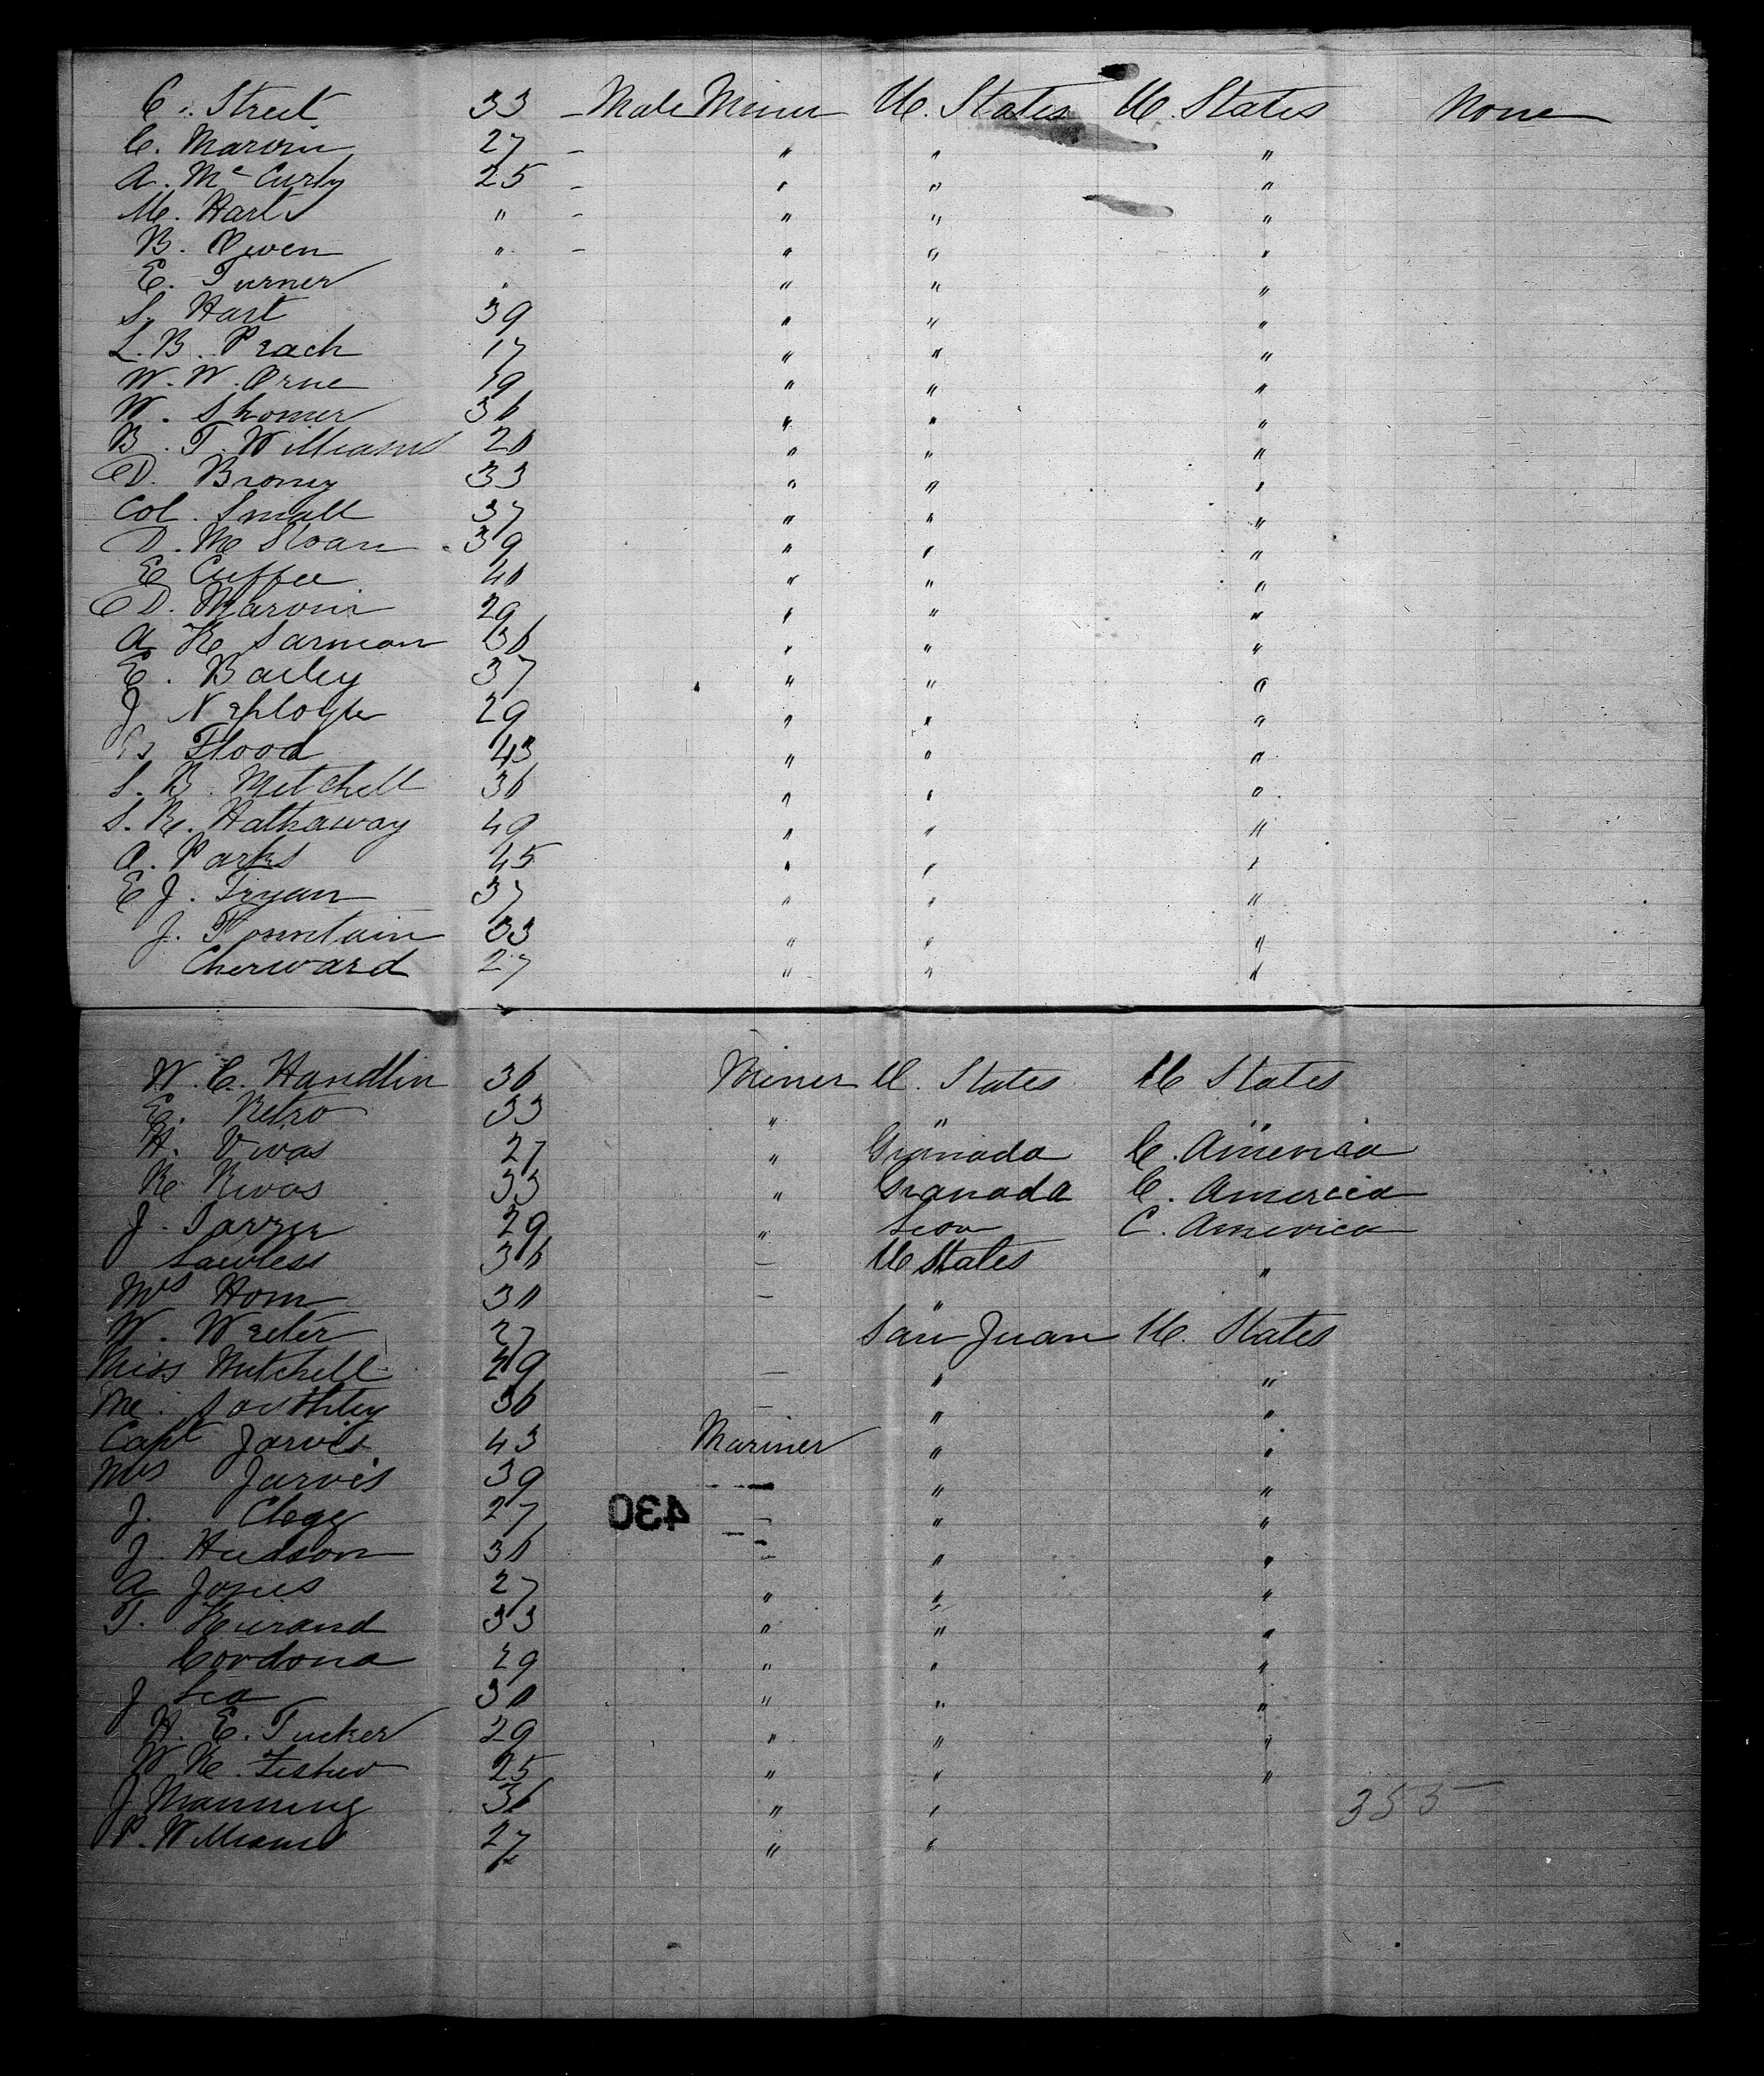 C. Street 33 – Male Miner U. States U. States None
C. Marvin 27 – " " "
A. McCurly 25 – " " "
M. Hart " – " " "
B. Owen " – " " "
E. Turner " " " "
S. Hart 39 " " "
L. B. Peach 17 " " "
W. W. Orne 19 " " "
W. Shomer 36 " " "
B. T. Williams 20 " " "
D. Brony 33 " " "
Col. Small 37 " " "
D. Mc Sloan 39 " " "
E Cuffee 40 " " "
D. Marvin 29 " " "
A K Sarmon 36 " " "
E. Bailey 37 " " "
J 29 " " "
Flood 43 " " "
S. B. Mitchell 36 " " "
S. R. Hathaway 49 " " "
A. Parks 45 " " "
E J. Tryan 37 " " "
J. Fountain 33 " " "
Cherward 27 " " "
W. C. Handlin 36 Miner U. States U States
E. Retro 33 " " "
H. Vivas 27 " Granada C. America
R. Rivas 33 " Granada C. America
J. 29 " Leon C. America
Lawless 36 – U States "
Mrs Horn 30 – "
W. Wester 27 San Juan U. States
Miss Mitchell 29 – " "
M. Southley 36 – " "
Capt Jarvis 43 Mariner " "
Mrs Jarvis 39 – " "
J. Clegg 27 – " "
430
J. Hudson 30 " " "
A Jones 27 " " "
T. Kurand 33 " " "
Cordona 29 " " "
J Lea 30 " " "
H. E. Tucker 29 " " "
W K. Fisher 25 " " "
J Manning 36 " " 355
P. Williams 27 " "